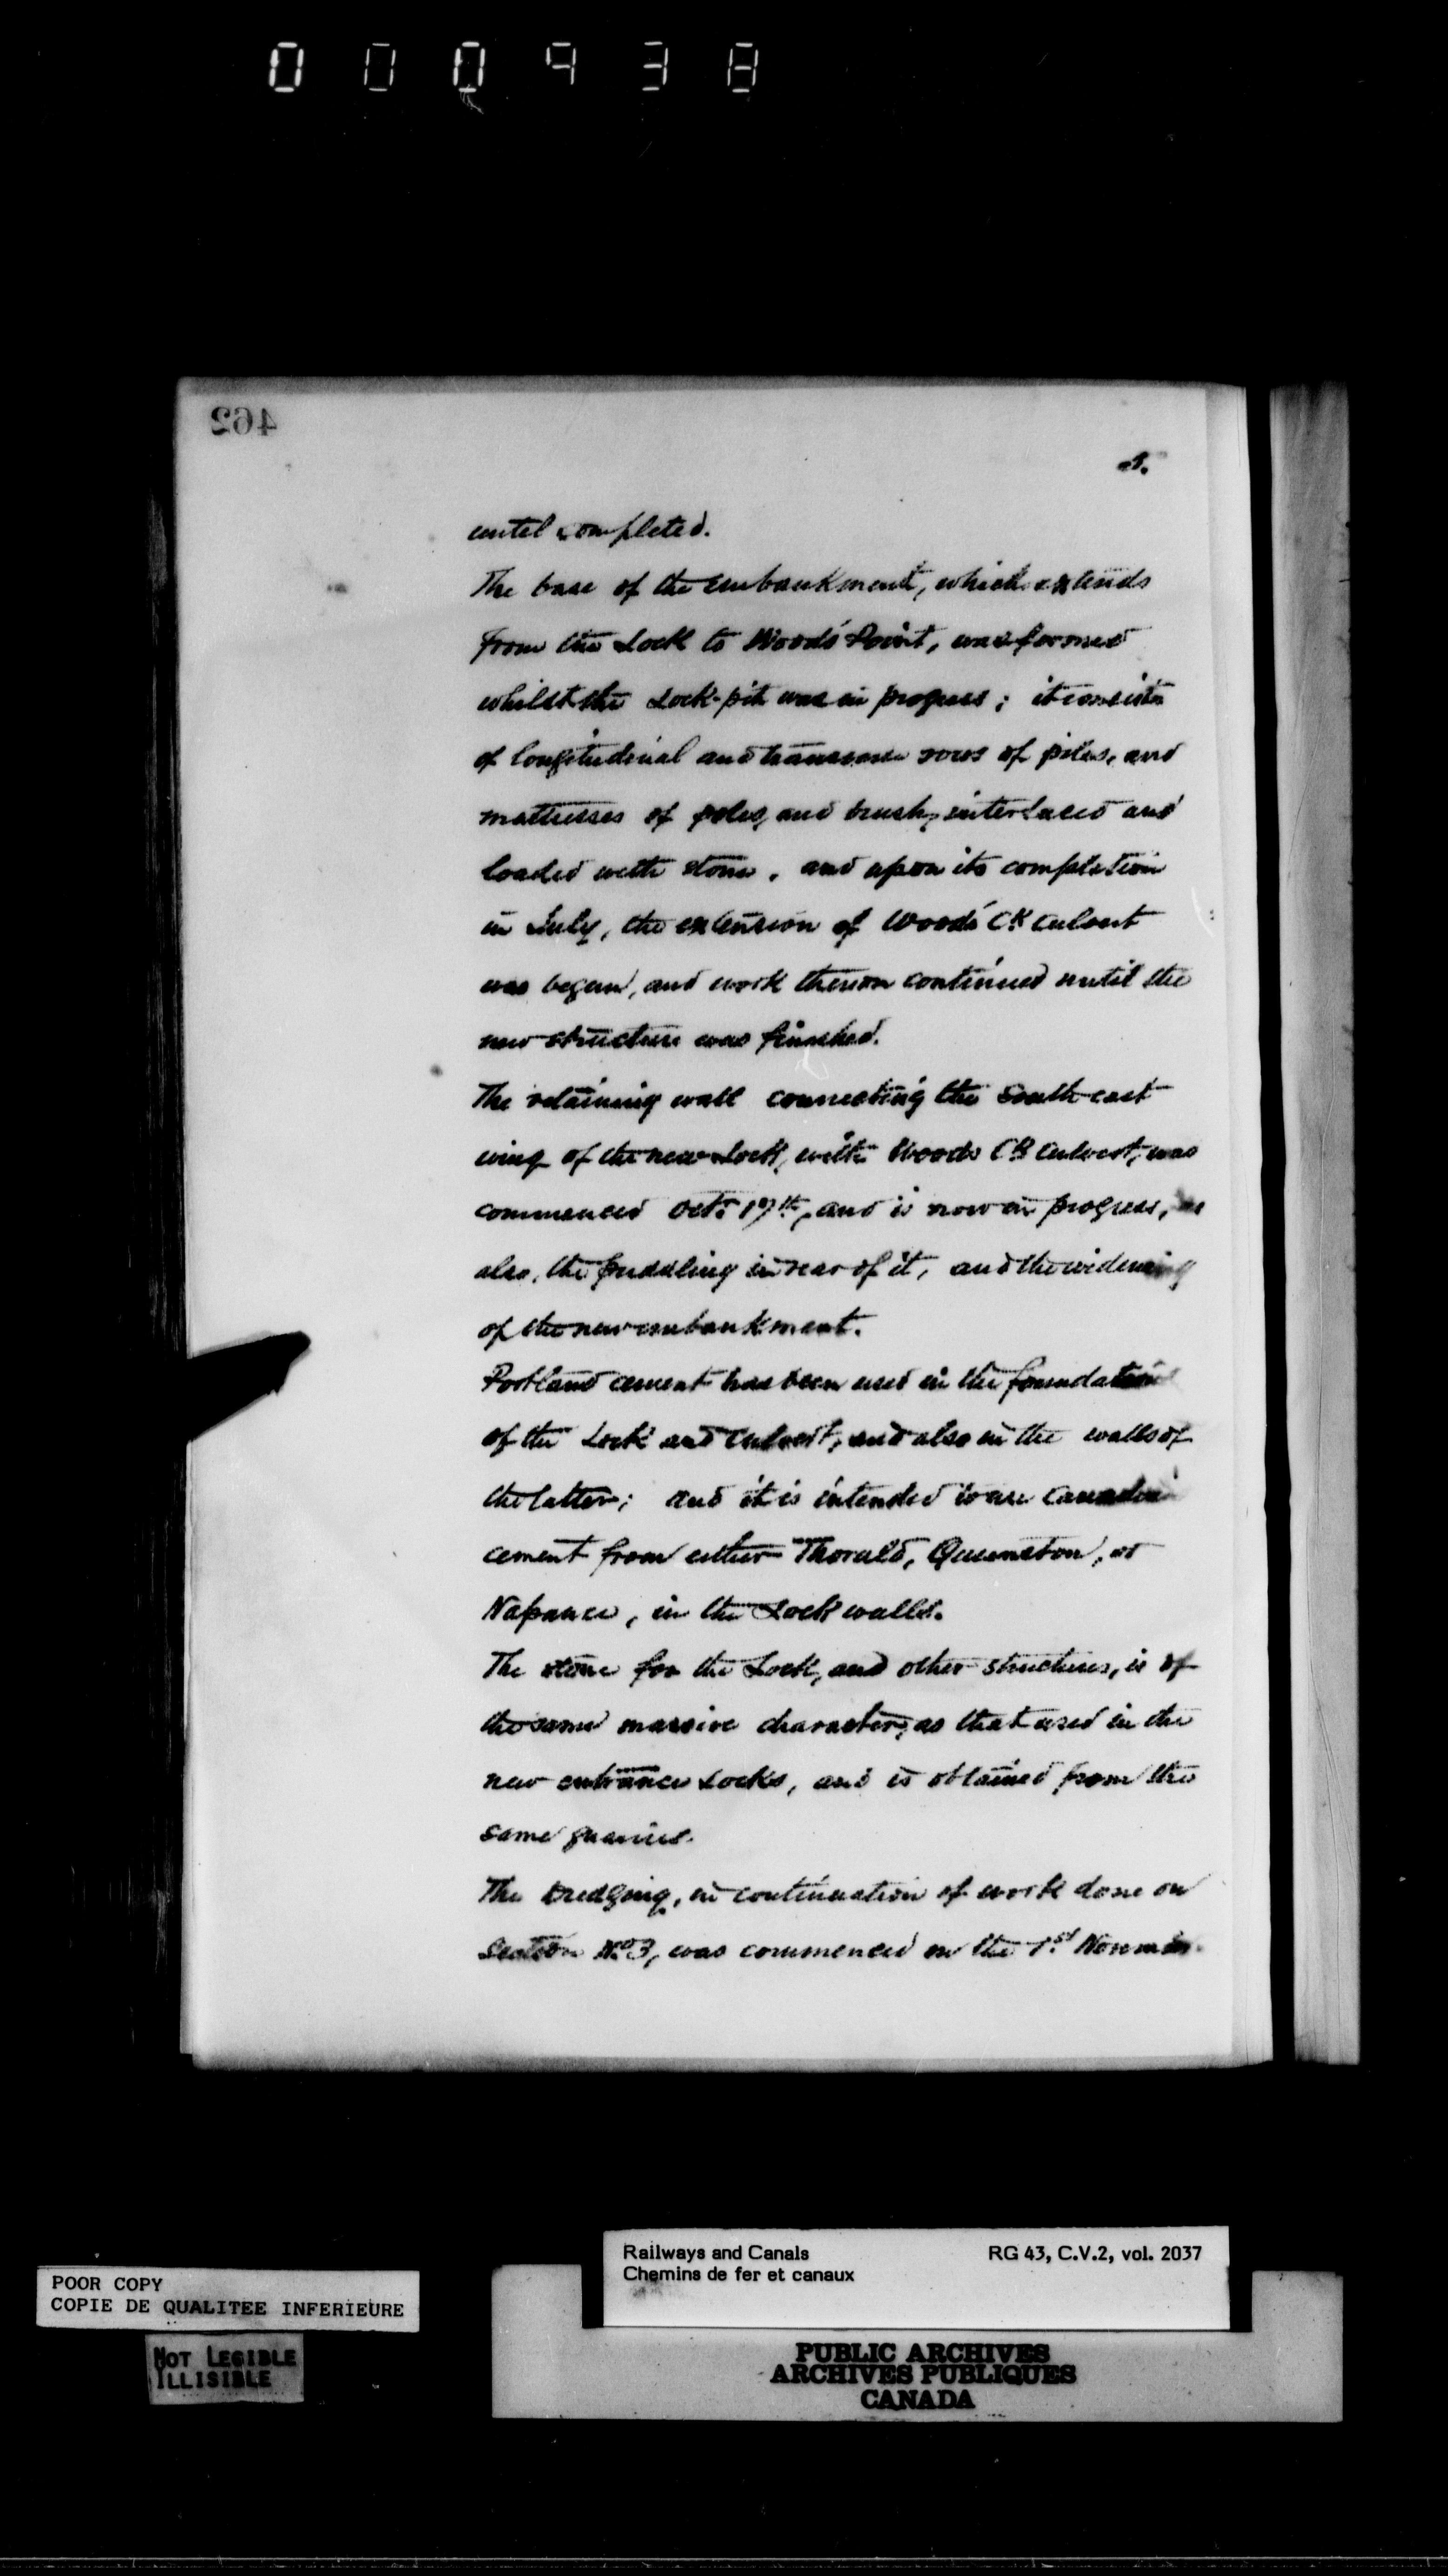 000938
462
until completed.
The base of the embankment, which extends
from the Lock to Woods' Point, was formed
whilst the Lock-pit was in progress; it consists
of longitudinal and transverse rows of piles, and
mattresses of poles, and brush, interlaced and
loaded with stone, and upon its completion
in July, the extension of Woods' Ck culvert
was begun, and work thereon continued until the
new structure was finished.
The retaining wall connecting the South-east
wing of the new Lock, with Woods Ck Culvert, was
commenced Octr. 17th, and is now in progress, as
also, the puddling in rear of it, and the widening
of the new embankment.
Portland cement has been used in the foundations
of the Lock and Culvert, and also in the walls of
the latter; and it is intended to use Canadian
cement from either Thorold, Queenston, or
Napanee, in the Lock walls.
The stone for the Lock, and other structures, is of
the same massive character, as that used in the
new entrance Locks, and is obtained from the
same quarries.
The dredging, in continuation of work done on
Section No. 3, was commenced on the 1st
Railways and Canals
Chemins de fer et canaux
RG 43, C.V.2, vol. 2037
POOR COPY
COPIE DE QUALITEE INFERIEURE
NOT LEGIBLE
ILLISIBLE
PUBLIC ARCHIVES
ARCHIVES PUBLIQUES
CANADA